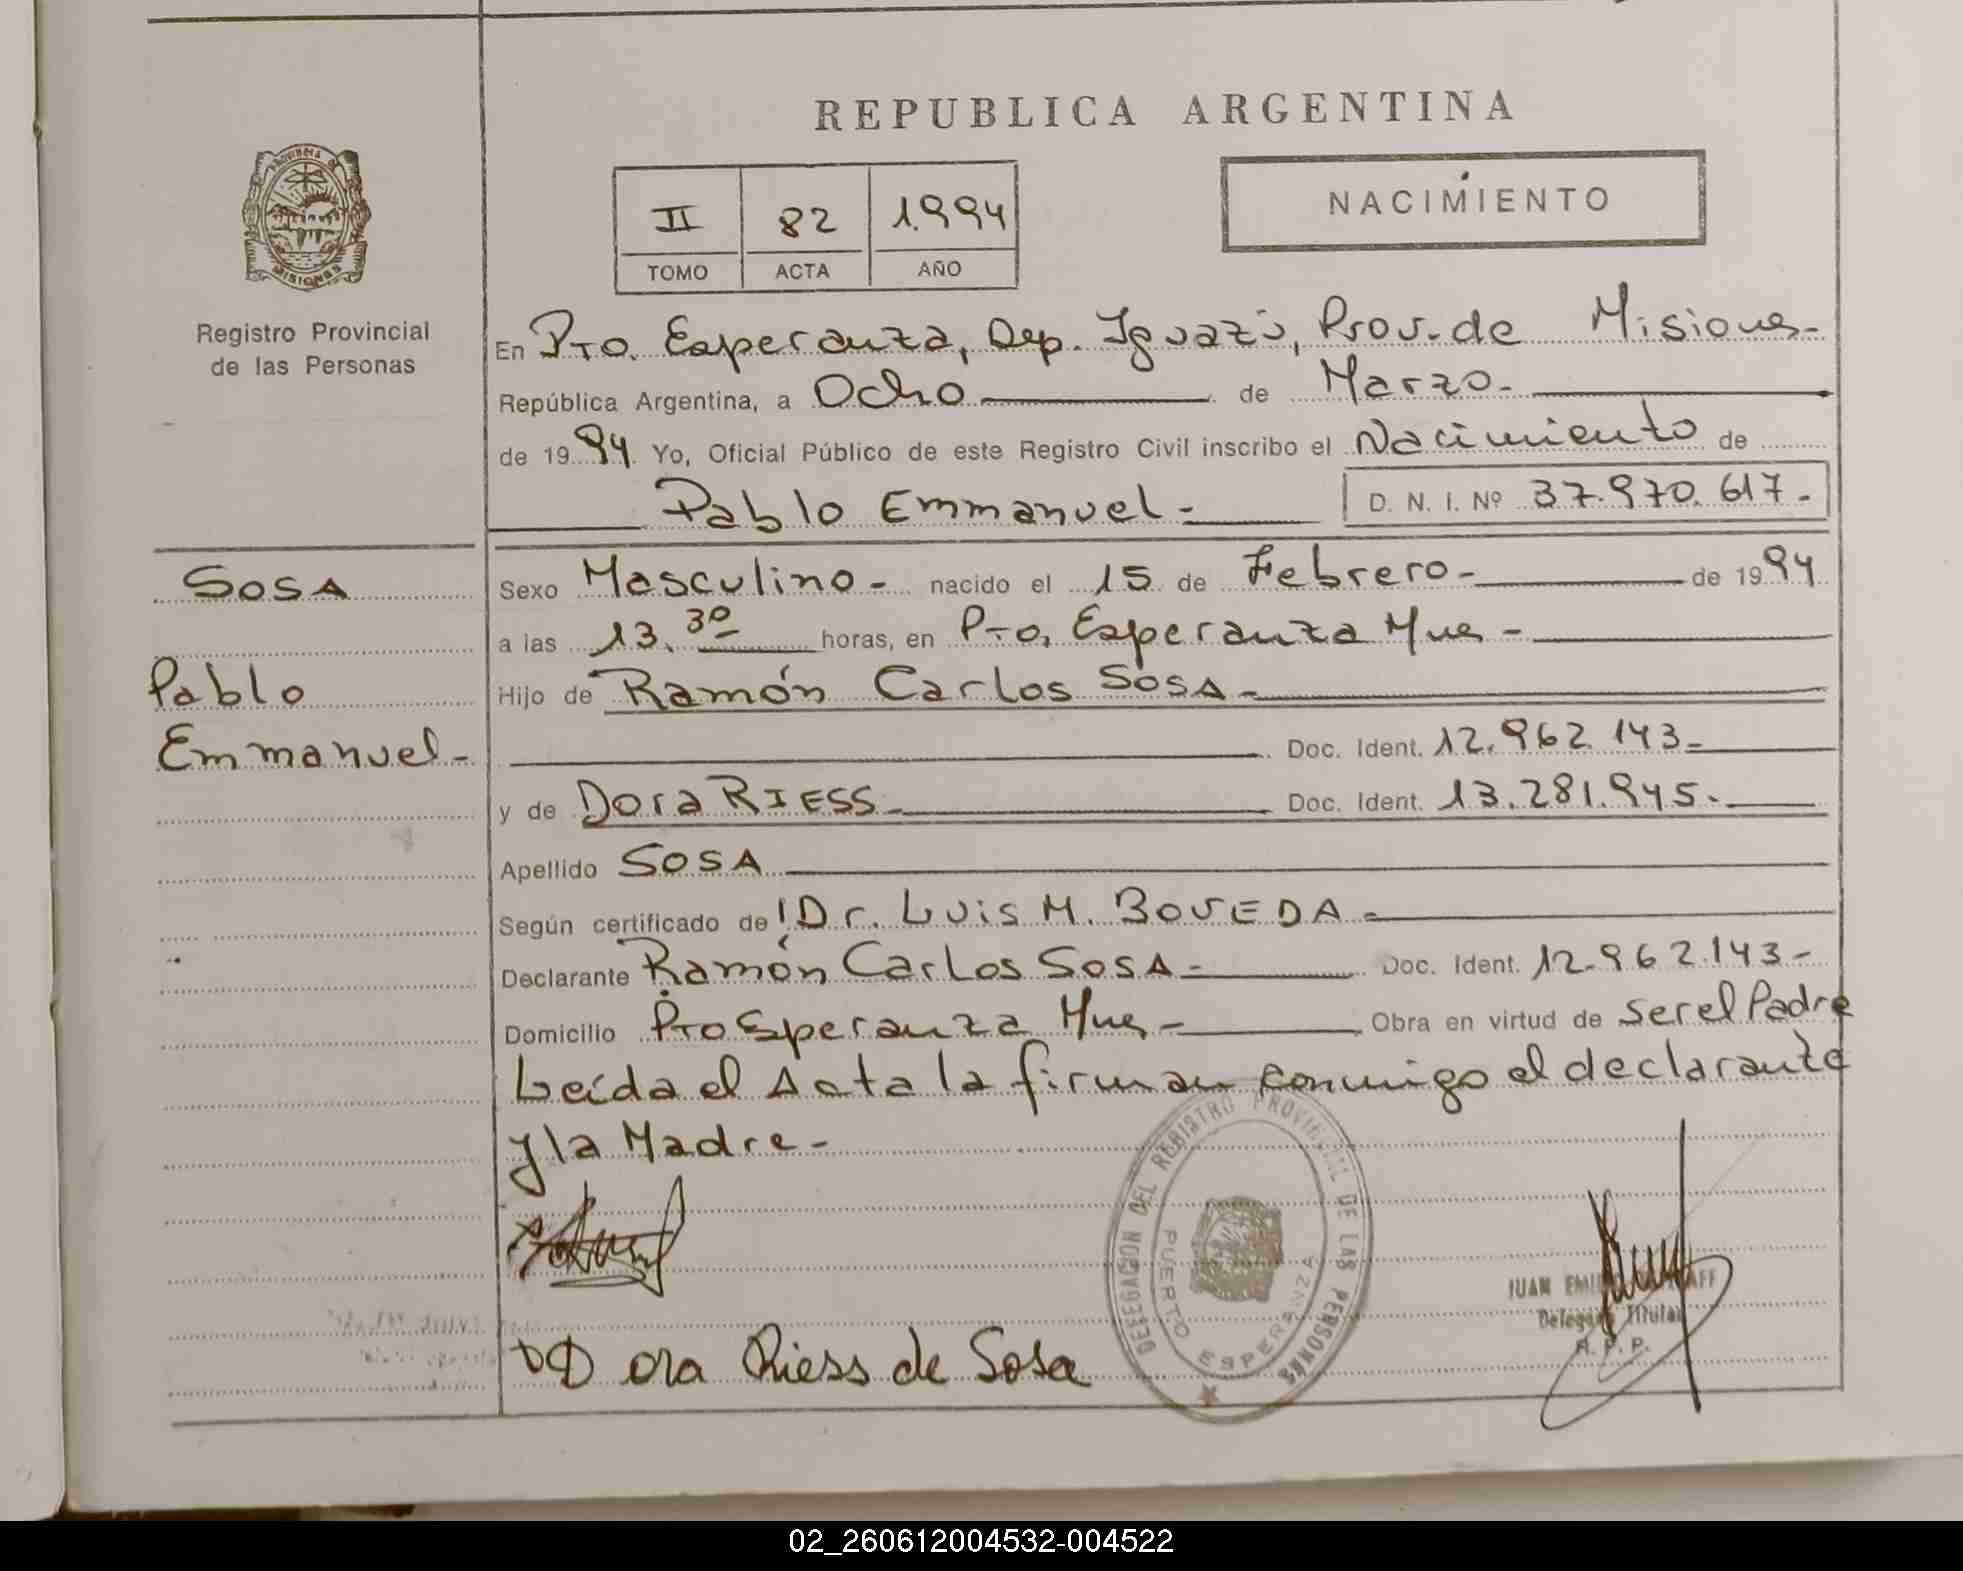 REPUBLICA ARGENTINA
PROVINCIA DE
MISIONES
Registro Provincial
de las Personas
II 82 1.994
TOMO ACTA AÑO
NACIMIENTO
En Pto. Esperanza, Dep. Iguazú, Prov. de Misiones-
República Argentina, a Ocho de Marzo-
de 1994 Yo, Oficial Público de este Registro Civil inscribo el Nacimiento de
Pablo Emmanuel- D. N. I. Nº 37.970.617-
SOSA
Pablo
Emmanuel-
Sexo Masculino- nacido el 15 de Febrero- de 1994
a las 13.30 horas, en Pto. Esperanza Mnes-
Hijo de Ramón Carlos SOSA-
Doc. Ident. 12.962.143-
y de Dora RIESS- Doc. Ident. 13.281.945-
Apellido SOSA
Según certificado de Dr. Luis M. BOVEDA-
Declarante Ramón Carlos SOSA- Doc. Ident. 12.962.143-
Domicilio Pto Esperanza Mnes- Obra en virtud de ser el Padre
Leída el Acta la firman conmigo el declarante
y la Madre-
DELEGACION DEL REGISTRO PROVINCIAL DE LAS PERSONAS
PUERTO ESPERANZA
JUAN
Delegado Titular
R. P. P.
Dora Riess de Sosa
02_260612004532-004522